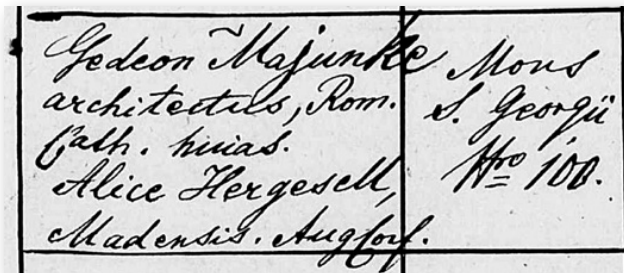 Gedeon Majunke
architectus, Rom.
Cath. huias.
Alice Hergesell,
Madensis. Aug Conf.
Mons
S. Georgii
Nro 100.